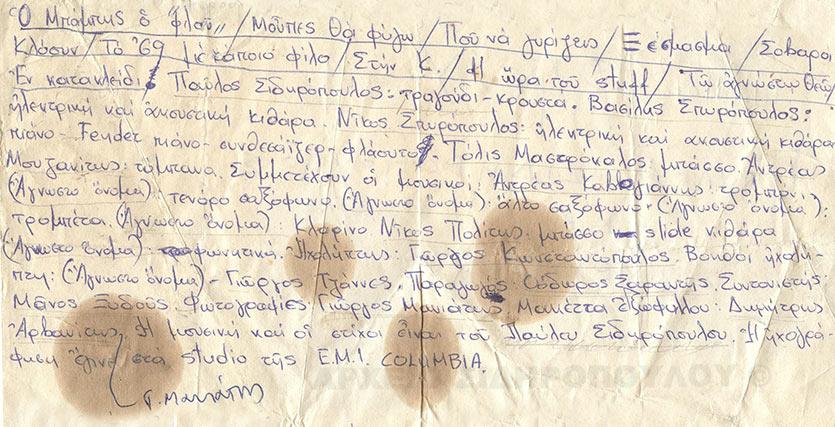 Ὁ Μπάμπης ὁ "φλού" / Μοῦπες θά φύγω / Πού νά γυρίζεις / Ξέσπασμα / Σοβαροί
Κλόουν / Τό '69 μέ κάποιο φίλο / Στήν Κ. / Ἡ ὥρα τοῦ stuff / Τῶ ἀγνώστω Θεῶ /
Ἐν κατακλεῖδι. Παῦλος Σιδηρόπουλος: τραγούδι - κρουστά. Βασίλης Σπυρόπουλος:
ἠλεκτρική καί ἀκουστική κιθάρα. Νῖκος Σπυρόπουλος: ἠλεκτρική καί ἀκουστική κιθάρα
πιάνο - Fender πιάνο - συνθεσάιζερ - φλάουτο. Τόλης Μαστρόκαλος μπάσσο. Ἀντρέας
Μουζακίτης: τύμπανα. Συμμετέχουν οἱ μουσικοί: Ἀντρέας Καβογιάννης: τρομπόνι.
(Ἄγνωστο ὄνομα) τενόρο σαξόφωνο. (Ἄγνωστο ὄνομα): ἄλτο σαξόφωνο. (Ἄγνωστο ὄνομα):
τρομπέτα. (Ἄγνωστο ὄνομα): Κλαρίνο Νῖκος Πολίτης: μπάσσο slide κιθάρα
(Ἄγνωστο ὄνομα): φωνητικά. Ἠχολήπτης: Γιῶργος Κωνσταντόπουλος. Βοηθοί ἠχολή-
πτη: (Ἄγνωστο ὄνομα) - Γιῶργος Τζάννες. Παραγωγός: Θόδωρος Σαραντής. Συντονιστής:
Μᾶνος Ξυδούς Φωτογραφίες: Γιῶργος Μανιάτης Μακέττα ἐξωφύλλου: Δημήτρης
Ἀρβανίτης. Ἡ μουσική καί οἱ στίχοι εἶναι τοῦ Παύλου Σιδηρόπουλου. Ἡ ἠχογρά-
φηση ἔγινε στά studio τῆς E.M.I. COLUMBIA.
Γ. Μανιάτης
ΑΡΧΕΙΟ ΣΙΔΗΡΟΠΟΥΛΟΥ ©